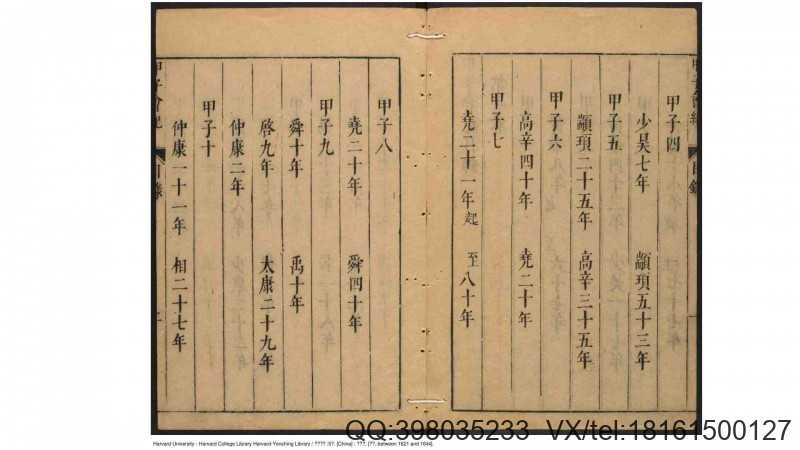 甲子會紀
目錄
甲子四
少昊七年 顓頊五十三年
甲子五
顓頊二十五年 高辛三十五年
甲子六
高辛四十年 堯二十年
甲子七
堯二十一年起 至八十年
甲子八
堯二十年 舜四十年
甲子九
舜十年 禹十年
啓九年 太康二十九年
仲康二年
甲子十
仲康一十一年 相二十七年
甲子會紀
目錄
QQ:398035233 VX/tel:18161500127
Harvard University - Harvard College Library Harvard-Yenching Library / ???? :5?. [China] : ???, [??, between 1621 and 1644].